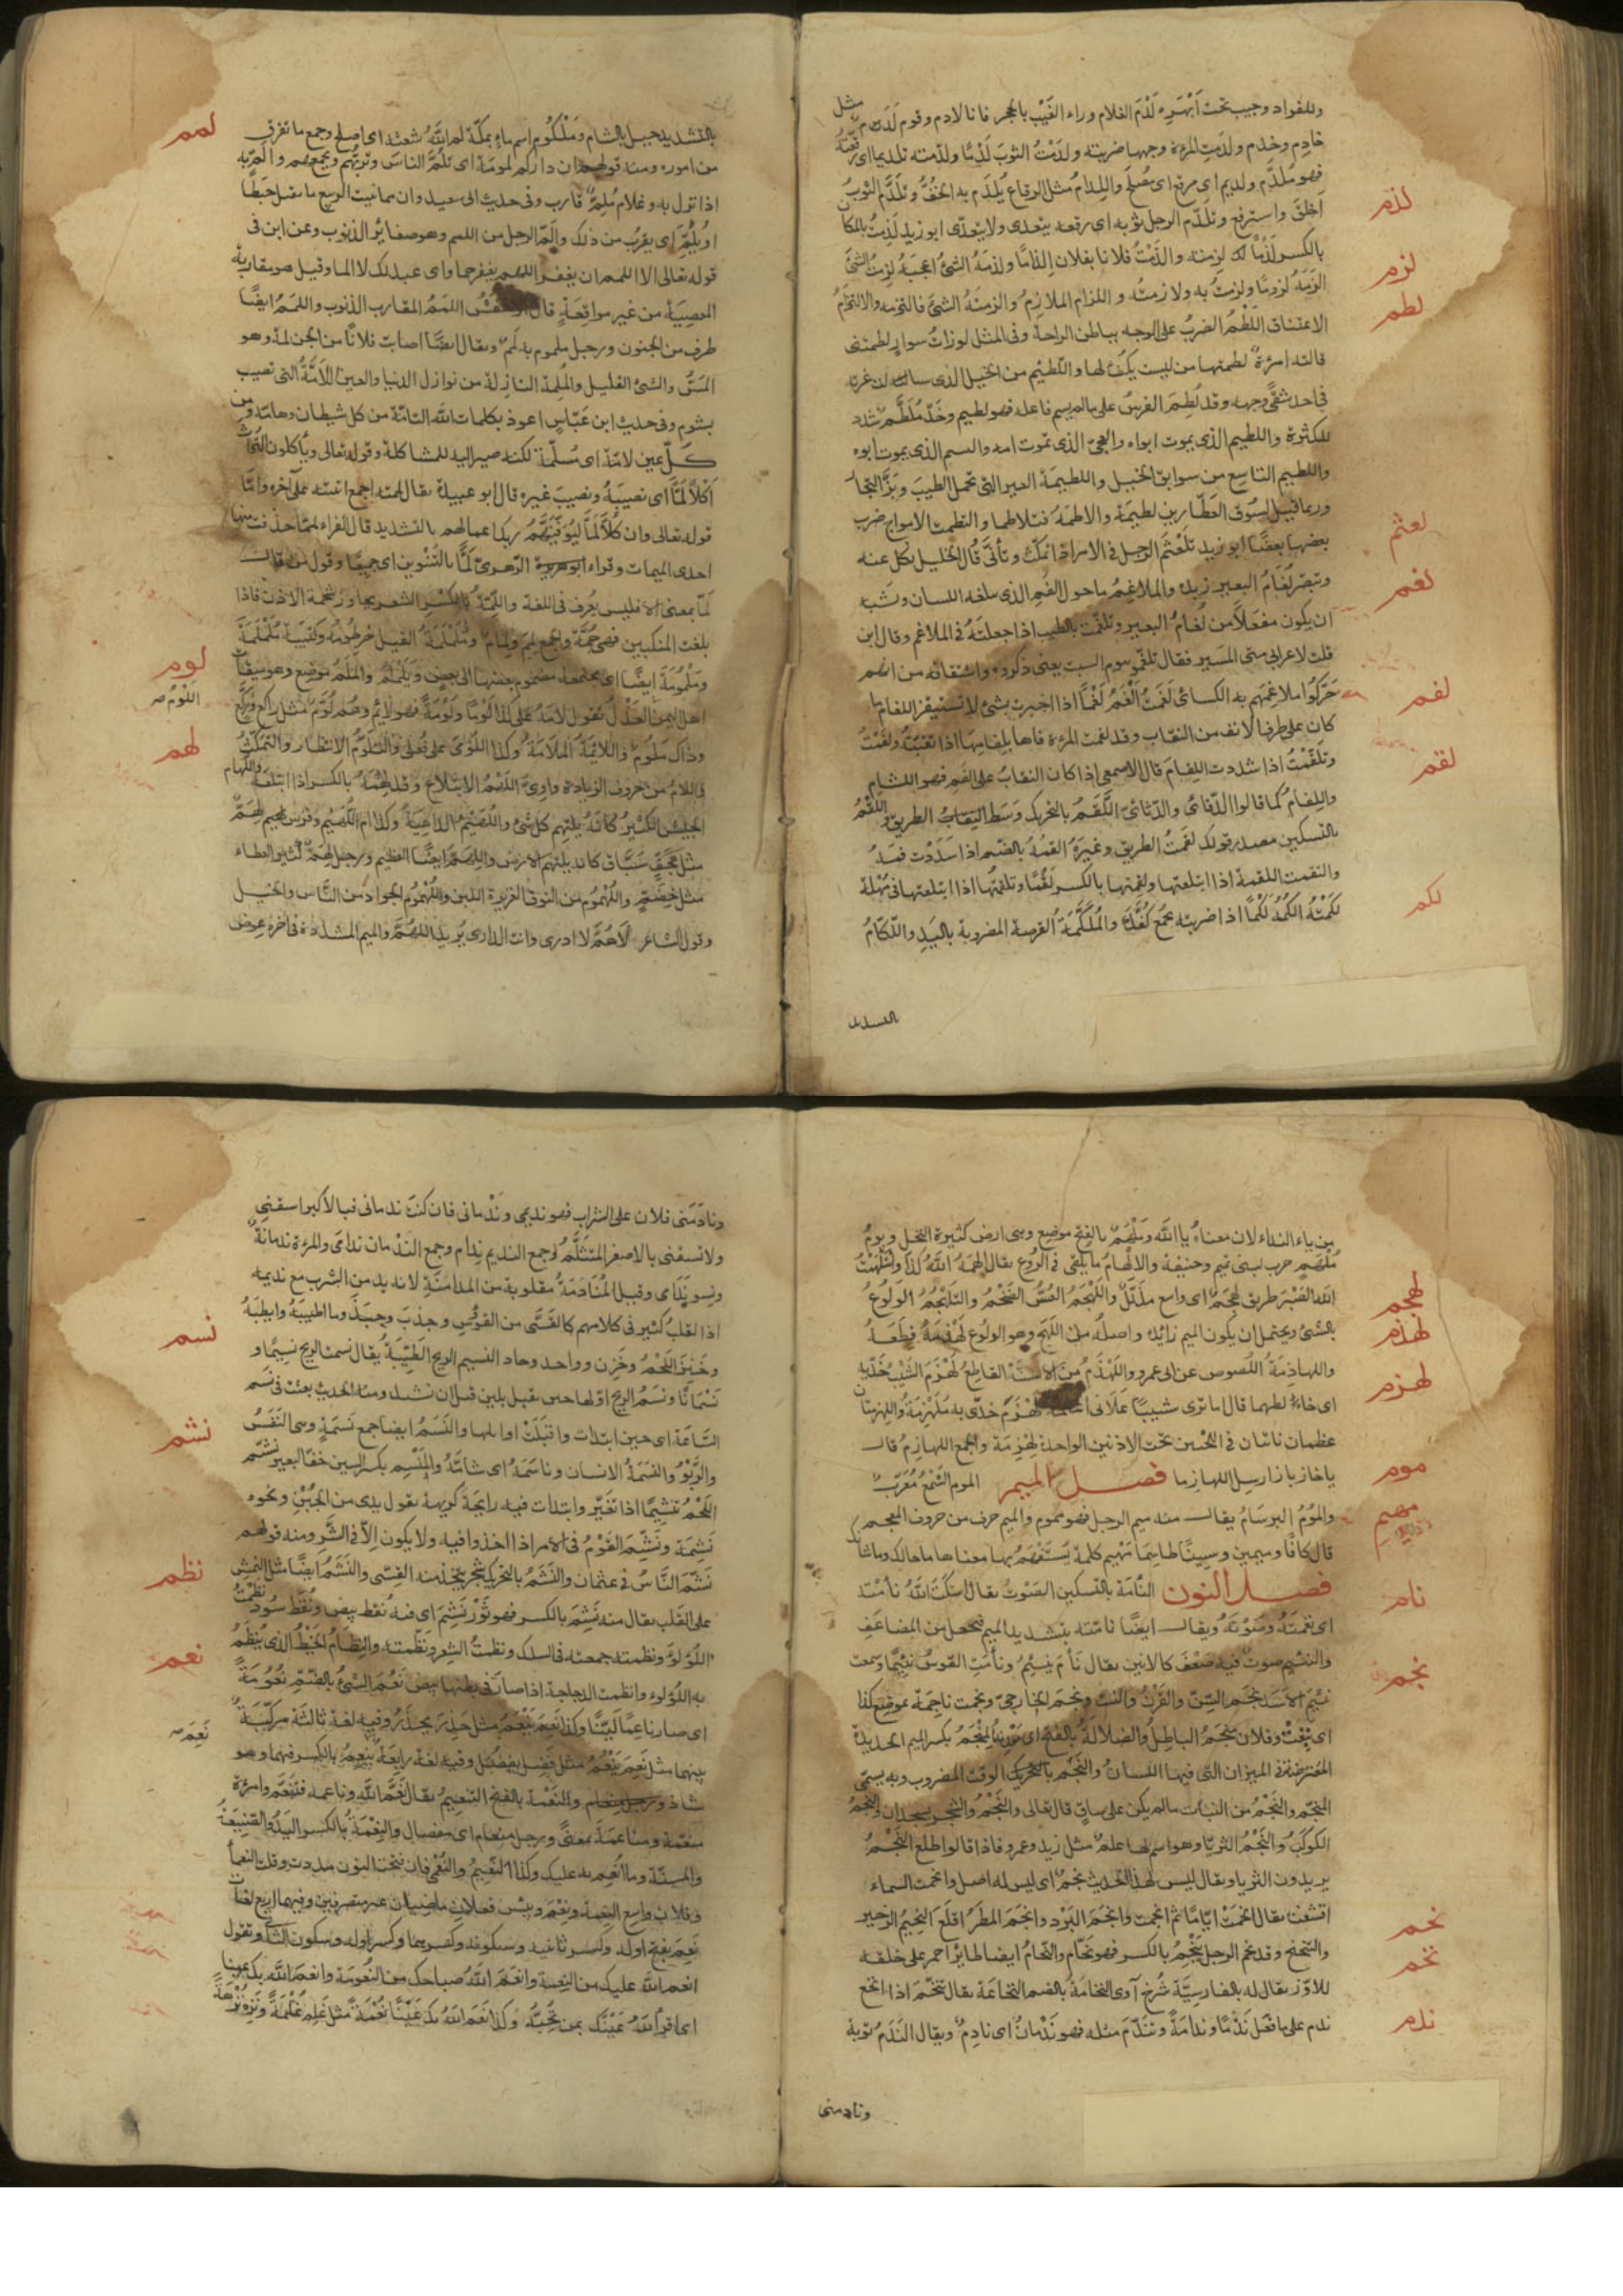 وللفواد وجيب تحت أبهره لَدْمَ الغلام وراء الغَيْب بالحجر فانا لادم وقوم لَدَم مثل
خادِم وخدم ولدمت المرءة وجهها ضربته ولدَمْتُ الثوبَ لَدْمًا ولدّمته تلديما اى رقعته
فهو مُلدَّم ولديم اى مرقع اى مُصلَح واللِدامُ مثل الرقاع يُلدَم به الخُفُّ وتلَدَّم الثوبُ
اخلق واسترقع وتلدّم الرجل ثوبه اى رقعه يتعدى ولا يتعدّى ابو زيد لَذِمْتُ بالمكان
لذم
بالكسر لَذْمًا اى لزمته والذَمْتُ فلانا بفلان إلذامًا ولذمهُ الشئ اعجبَهُ لزِمْتُ الشئَ
لزم
الزَمُهُ لزومًا ولزمتُ به ولازمتُه و اللزام الملازِمُ والزمتهُ الشئ فالتزمه والالتزامُ
الاعتناق اللَطْمُ الضربُ على الوجه بباطن الراحة وفى المثل لو ذاتُ سوارٍ لطمتنى
لطم
قالته امرءة لطمتها من ليست بكفٍ لها واللّطيم من الخيل الذى سالت غرته
فى احد شقَّى وجهه وقد لُطِمَ الفرسُ على ما لم يسم فاعله فهو لطيم وخَدّ مُلَطَّم شدد
للكثرة واللطيم الذى يموت ابواه والعجىّ الذى تموت امه واليتيم الذى يموت ابوه
واللطيم التاسع من سوابق الخيل واللطيمَة العير التى تحمل الطيبَ وبَزَّ التجار
وربما قيل لسُوق العَطّارين لطيمة ولاطمَهُ فتلاطما والتطمت الامواج ضرب
بعضها بعضًا ابو زيد تلَعْثَمَ الرجل فى الامر اذا تمكّث وتأنَّى قال الخليل نكل عنه
لعثم
وتبصّر لُغامُ البعير زبده والملاغِمُ ما حول الفمِ الذى يبلغه اللسان ويشبه
لغم
ان يكون مفعَلاً من لُغام البعير وتلغّمت بالطيب اذا جعلتَهُ فى الملاغم وقال ابن
قلت لاعرابى متى المسير فقال تلغّموا بيوم السبت يعنى ذكروه واشتقاقه من انهم
حَرّكوا ملاغِمَهم به الكسائى لَغَمتُ الْغَمُ لَغْمًا اذا اخبرت بشئ لا تستيقنه اللفام ما
لفم
كان على طرف الانف من النقاب وقد لفمت المرءة فاها بلفامِها اذا نقبَته ولفَمْتُ
وتلَفّمْتُ اذا شددت اللِفامَ قال الاصمعى اذا كان النقابُ على الفم فهو اللثام
واللِفامُ كما قالوا الدّفائى والدّثائى اللَّقَمُ بالتحريك وَسَط الطريق واللَقْمُ
لقم
بالتسكين مصدر قولك لقَمتُ الطريق وغيرَهُ القمهُ بالضم اذا سَدَدْت فَمَهُ
والتقمت اللقمة اذا ابتلعتها ولقمتها بالكسر لقْمًا وتلقمتُها اذا ابتلعتها فى مُهلة
لكمْتُهُ الكُمُهُ لَكْمًا اذا ضربته بجُمْع كَفِّكَ والمُلَكَّمَةُ القرصة المضروبة باليَدِ واللُكّامُ
لكم
بالتشديد
بالتشديد جبل بالشام ومَلْكُوم اسم ماءٍ بمكّة لم اللّهُ شَعَثه اى اصلح وجمع ما تفرق
لمم
من اموره ومنه قولهم ان داركم لمومَة اى تلُمُّ الناسَ وتربُّهم وتجمعهم والمّ به
اذا نزل به وغلام مُلِمّ قارب وفى حديث ابى سعيد وان مما ينبت الربيع ما يقتل حَبَطًا
او يُلِمّ اى يقرُب من ذلك والَمّ الرجل من اللمم وهو صغائر الذنوب وعن ابن فى
قوله تعالى الا اللمم ان يغفر اللهم يغفر جما واى عبد لك لا الما وقيل هو مقاربة
المعصِيَة من غير مواقِعَةٍ قال الاخفش اللَمَمُ المقارب الذنوب واللمَمُ ايضًا
طرف من الجنون ورجل ملموم به لَمَم ويقال ايضًا اصابت فلانًا من الجن لمّة وهو
المَسُّ والشئ القليل والمُلِمّة النازلة من نوازل الدنيا والعين اللاّمّةُ التى تصيب
بسُوء وفى حديث ابن عَبّاسٍ اعوذ بكلمات اللّه التامّة من كل شيطان وهامّة ومن
كلّ عين لامّة اى مُلِمّة لكنه صير اليه للمشاكلة وقوله تعالى ويأكلون التُراث
أكْلًا لَمًّا اى نصيبَهُ ونصيبَ غيره قال ابو عبيدة يقال لممته اجمع اتيته على آخره وامّا
قوله تعالى وان كُلاًّ لَمَّا لَيُوَفّيَنَّهُمْ ربك اعمالهم بالتشديد قال الفراء لممّا حذفت منها
احدى الميمات وقراء الزهرىّ لَمًّا بالتنوين اى جميعًا وقول من قال
لمّا بمعنى الا فليس يُعرف فى اللغة واللِمّةُ بالكسر الشعر يجاوز شحمة الاذن فاذا
بلغت المنكبين فهى جُمَّة والجمع لِمَم ولِمام ومُلَمْلَمَةُ الفيل خرطومُهُ وكتيبَة مُلَمْلَمَة
ومَلْمُومَة ايضًا اى مجتمعة مضموم بعضها الى بعضٍ ويَلَمْلَمُ والمَلَمُ موضع وهو ميقات
لوم
اهل اليمن العَذْلُ تقول لامَهُ على كذا لَوْمًا ولَوْمَةً فهو لائم وهُم لُوّم مثل راكع ورُكّع
اللوْمُ صح
وذاك مَلُوم واللائِمَةُ المَلامَةُ وكذا اللَوْمَى على فَعْلَى والتلَوّمُ الانتظار والتمَكُّثُ
واللامُ من حروف الزيادة اللَهْمُ الابتلاع وقد لهِمَهُ بالكسر اذا ابتلعَهُ واللُهام
لهم
الجيش الكثير كانه يلتهم كل شئ واللُهَيْمُ الدّاهِيَةُ وكذا ام اللُهَيم وفرس لِهَمّ
مثل هِجَفٍّ سَبّاق كانه يلتهم الارض واللِهَمّ ايضًا العظيم ورجل لِهَمّ كثير العطاء
مثل خِضَمٍّ واللُهْمُوم من النوق الغزيرة اللبن واللُهْمُوم الجواد من النّاس والخيل
وقول الشاعر لاهُمَّ لا ادرى وانت الدارى يُريد اللهُمَّ والميم المشدّدة فى آخره عِوض
من ياء النداء لان معناهُ يا اللّه ومَلْهَمٌ بالفتح موضع وهى ارض كثيرة النخل ويومُ
مَلْهَم حرب لبنى تميم وحنيفة والالهامُ ما يُلقى فى الرُوع يقال الْهَمَهُ اللّهُ كذا واستَلْهَمْتُ
اللّه الصَبْرَ طريق لَهْجَمٌ اى واسع مذلّلٌ واللَهْجَمُ العُسّ الضَخْمُ والتلَهْجُمُ الوَلوعُ
لهجم
بالشئ ويحتمل ان يكون الميم زائدة واصلُه من اللَهَج وهو الولُوع لَهْذَمَهُ قطَعَهُ
لهذم
واللهاذِمَةُ اللُصوص عن ابى عمرو واللَهْذَمُ من الاسنّة القاطعُ لَهْزَمَ الشَيْبُ خَدّيه
اى خالطهما قال اما ترى شيبًا عَلانى لَهْزَمَ خدّى به مُلَهْزِمُه واللِهزِمَتان
لهزم
عظمان ناتئان فى اللحيين تحت الاذنين الواحدة لِهْزِمَة والجمع اللهازِمُ قال
يا خازِ باز ارسل اللهازما فصل الميم المومُ الشَمْعُ مُعَرّب
موم
والمُومُ البِرسَامُ يقال منه ميم الرجل فهو مَموم والميم حرف من حروف المعجم
قال كافًا وميمين وسِينًا طاسِمًا مَهْيَم كلمة يُستفهَم بها معناها ما حالك وما شانك
مهيم
فصل النون النأمَة بالتسكين الصَوْتُ يقال اسكتَ اللّهُ نأمته
نام
اى نغمتَهُ وصَوْتَهُ ويقال ايضًا نامّته بتشديد الميم فيجعل من المضاعَفِ
والنئيم صوت فيه ضعْف كالانين يقال نأم يَنئِمُ ونأمَتِ القَوسُ نئِيمًا وسمعت
نئيمَ الاسَد نجَم السِنّ والقَرْنُ والنبت ونجم الخارجىّ ونجمت ناجِمَة بموضع كذا
نجم
اى نبغَتْ وفلان مَنجَمُ الباطل والضلالة بالفتح اى معدِنهُ والمِنْجَمُ بكسر الميم الحديدة
المعترضة فى الميزان التى فيها اللسانُ والنَجْمُ الوقت المضروب وبه يسمّى
المنجّم والنَجْمُ من النبات ما لم يكن على ساقٍ قال تعالى والنَجْمُ والشَجَر يسجدان والنَجْمُ
الكوكَبُ والنَجْمُ الثريّا وهو اسم لها علمٌ مثل زيد وعمرو فاذا قالوا طلع النَجْمُ
يريدون الثريا ويقال ليس لهذا الحديث نجمٌ اى ليس له اصل وانجمت السماء
اقشعت يقال انجَمَتْ ايّامًا ثم اثجمت وانجَمَ البَرْد وانجَمَ المطَرُ اقلَعَ النحِيمُ الزحير
نحم
والتنحنح وقد نحَم الرجل يَنْحِمُ بالكسر فهو نحّام والنحّامُ ايضا طائر احمر على خلقه
للاوّز يقال له بالفارسِيّة سُرخ آوى النخامَةُ بالضم النخاعَة يقال تنخّم اذا انخع
نخم
ندم على ما فعَل نَدَمًا وندامَةً وتندّم مثله فهو نَدْمانُ اى نادِمٌ ويقال النَدَمُ توبة
ندم
ونادمنى
ونادَمَنى فلان على الشراب فهو نديمى ونَدْمانى فان كنت ندمانى فبالاكبر اسقنى
ولا تسقنى بالاصغر المتثلّم وجمع النديم نِدام وجمع الندْمان نَدامَى والمرءة ندمانةٌ
ونسوة نَدامى وقيل المُنادَمَةُ مقلوبة من المدامَنَةِ لانه يدمن الشرب مع نديمه
اذ القلبُ كثير فى كلامهم كالقِسِىّ من القَوْسِ وجذبَ وجبَذَ وما اطيبَهُ وايطبَهُ
وخَنِزَ اللحْمُ وخَزِن وواحد وحاد النسيم الريح الطَيّبَةُ يُقال نسمت الريح نسِيمًا و
نسم
نَسَمَانًا ونَسَمُ الريح اوّلها حين تقبل بلين قبل ان تشتد ومنه الحديث بعثت فى نَسَم
السّاعَة اى حين ابتدات واقبَلَتْ اوايلها والنَسَمُ ايضا جمع نَسَمَةٍ وهى النَفَسُ
والرَبْوُ والنَسَمَةُ الانسان وناسَمَهُ اى شامّهُ والمَنْسِم بكسر السين خفّ البعير نشّم
نشم
اللَحْمُ تَنْشِيمًا اذا تغَيّر وابتدات فيه رايحَة كريهة يقول يدى من الجُبْنِ ونحوه
نَشِمَة ونَشّمَ القَوْمُ فى الامر اذا اخذوا فيه ولا يكون الاّ فى الشَّر ومنه قولهم
نَشّمَ النَّاسُ فى عثمان والنَشَمُ بالتحريك شجر يتخذ منه القِسِى والنَشَمُ ايضًا مثل النمش
على القلب يقال منه نَشِمَ بالكسر فهو ثَوْر نَشِمٌ اى فيه نقط بيض ونُقَط سُود نظَمْتُ
نظم
اللّؤلؤ ونظمته جمعته فى السلك ونظمتُ الشِعر ونظّمته والنِظامُ الخَيْطُ الذى يُنظَمُ
به اللؤلوء وانظمت الدجاجة اذا صار فى بطنها بيض نَعُمَ الشئُ بالضّمّ نُعُومَة
نعم
اى صار ناعمًا لَيّنًا وكذا نَعِمَ يَنْعَمُ مثل حَذِرَ يحذَرُ وفيه لغة ثالثة مركّبَةٌ
بينهما مثل نَعِمَ يَنْعُمُ مثل فَضِل يفضُل وفيه لغة رابِعَة يَنْعِمُ بالكسر فيهما وهو
نَعِمَ صح
شاذ والنَعْمَة بالفتح التنعيمُ يقال نَعَّمَهُ اللّهُ وناعمه فتَنَعّمَ وامرءة
منعّمة ومناعَمَة بمعنًى ورجل منعام اى مفضال والنِعْمَةُ بالكسر اليَدُ والصَنِيعَةُ
والمنّة وما اُنعِم به عليك وكذا النُعْمَى فان فتحت النون مددت وقلت النعمآ
وفلان واسع النِعمَة ونِعْمَ وبِئسَ فعلان ماضيان غير متصرفين وفيهما اربع لغات
نَعِمَ بفتح اوله وكسر ثانيه وبسكونه وكسرهما وكسر اوله وسكون الثانى وتقول
انعم اللّه عليك من النِعمة وانعَمَ اللّهُ صباحك من النُعُومَة وانعم اللّه بك عينا
اى اقرّ اللّهُ عَيْنَك بمن تحِبّهُ وكذا نَعِمَ اللّهُ بك عَيْنًا نُعْمَةً مثل غَلِمَ غُلْمَةً ونَزِهَ نُزْهَةً